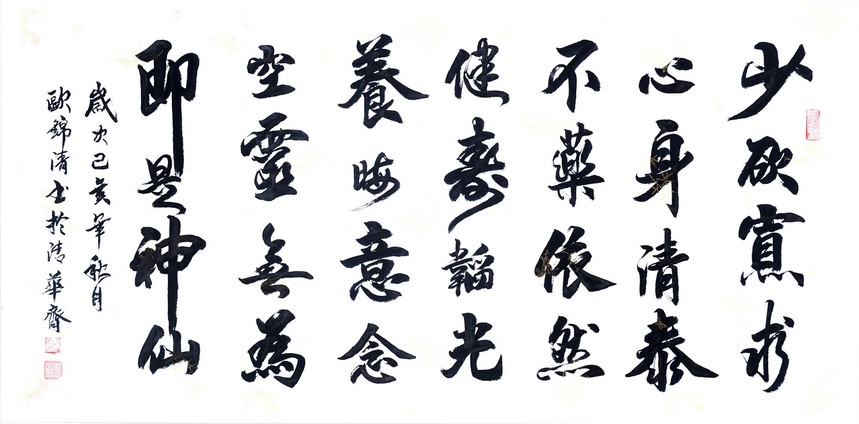 少欲寡求
心身清泰
不藥依然
健壽韜光
養晦意念
空靈無為
即是神仙
歲次己亥年秋月
歐錦清書於清華齋